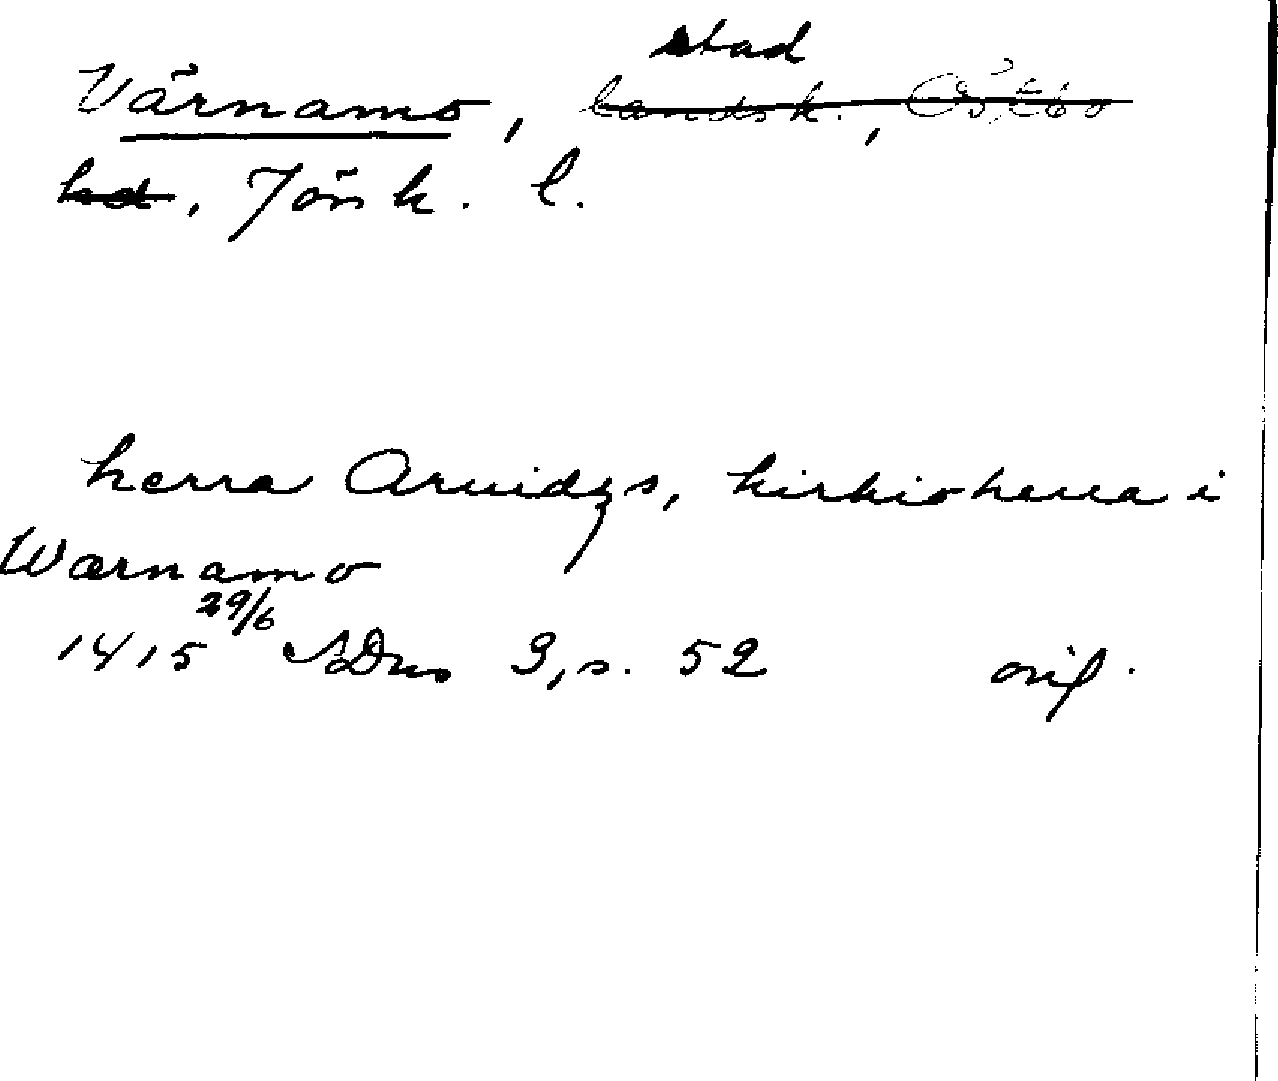 stad
Värnamo, landsk., Östbo
hd, Jönk. l.
herra Aruidzs, kirkioherra i
Wærnamo
1415 29/6 SDns 3, s. 52 orig.